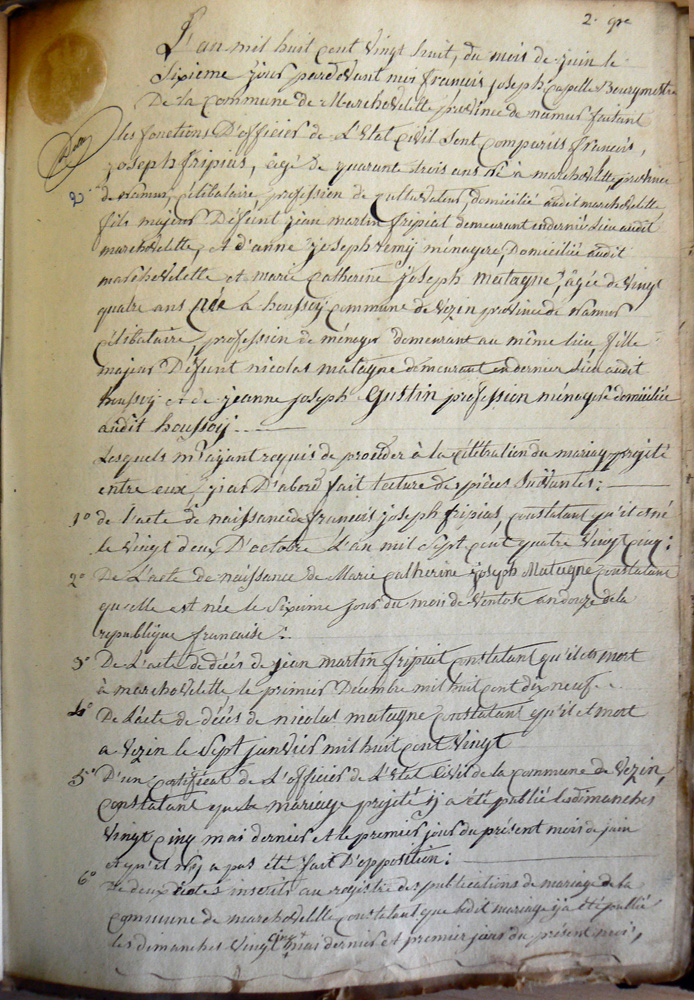 2. gre
L'an mil huit cent vingt huit, du mois de juin le
Sixieme jour pardevant moi francois joseph Capelle Bourgmestre
De la Commune de Marchovelette province de namur faisant
les fonctions D'officier de L'Etat Civil sont comparus francois,
joseph fripias, âgé de quarante trois ans né à marchovelette, province
2 de namur, célibataire, profession de cultivateur, domicilié audit marchovelette
fils majeur Défunt jean martin fripiat demeurant en dernié lieu audit
marchovelette, et d'anne joseph remy ménagere, Domiciliée audit
marchovelette et marie catherine joseph matagne, âgée de vingt
quatre ans née à houssoÿ commune de vezin province de namur
célibataire, profession de ménager demeurant au même lieu fille
majeur Défunt nicolas matagne demeurant en dernier lieu audit
houssoÿ et de jeanne joseph Gustin profession ménagere domiciliée
audit houssoÿ.
Lesquels m'ayant requis de proceder à la célébration du mariage projeté
entre eux, j'ai D'abord fait lecture des pièces suivantes:
1° de l'acte de naissance de francois joseph fripias, constatant qu'il est né
le vingt deux D'octobre L'an mil sept cent quatre vingt cinq:
2° De L'acte de naissance de Marie catherine joseph Matagne constatant
qu'elle est née le sixieme jour du mois de ventose an douze de la
republique francaise:
3° De L'acte de décés de jean martin fripiat constatant qu'il est mort
à marchovelette le premier Décembre mil huit cent dix neuf.
4° De L'acte de décés de nicolas matagne constatant qu'il est mort
a vezin le sept janvier mil huit cent vingt
5° D'un certificat de L'officier de L'Etat Civil de la commune de vezin,
constatant que le mariage projeté ÿ a été publié les dimanches
vingt cinq mai dernier et le premier jour du présent mois de juin
et qu'il n'ÿ a pas été fait D'opposition:
6° De deux actes inscrits au registre des publications de mariage de la
commune de marchovelette constatant que ledit mariage ÿ a été publié
les dimanches vingt cinq mai dernier et premier jour du présent mois,